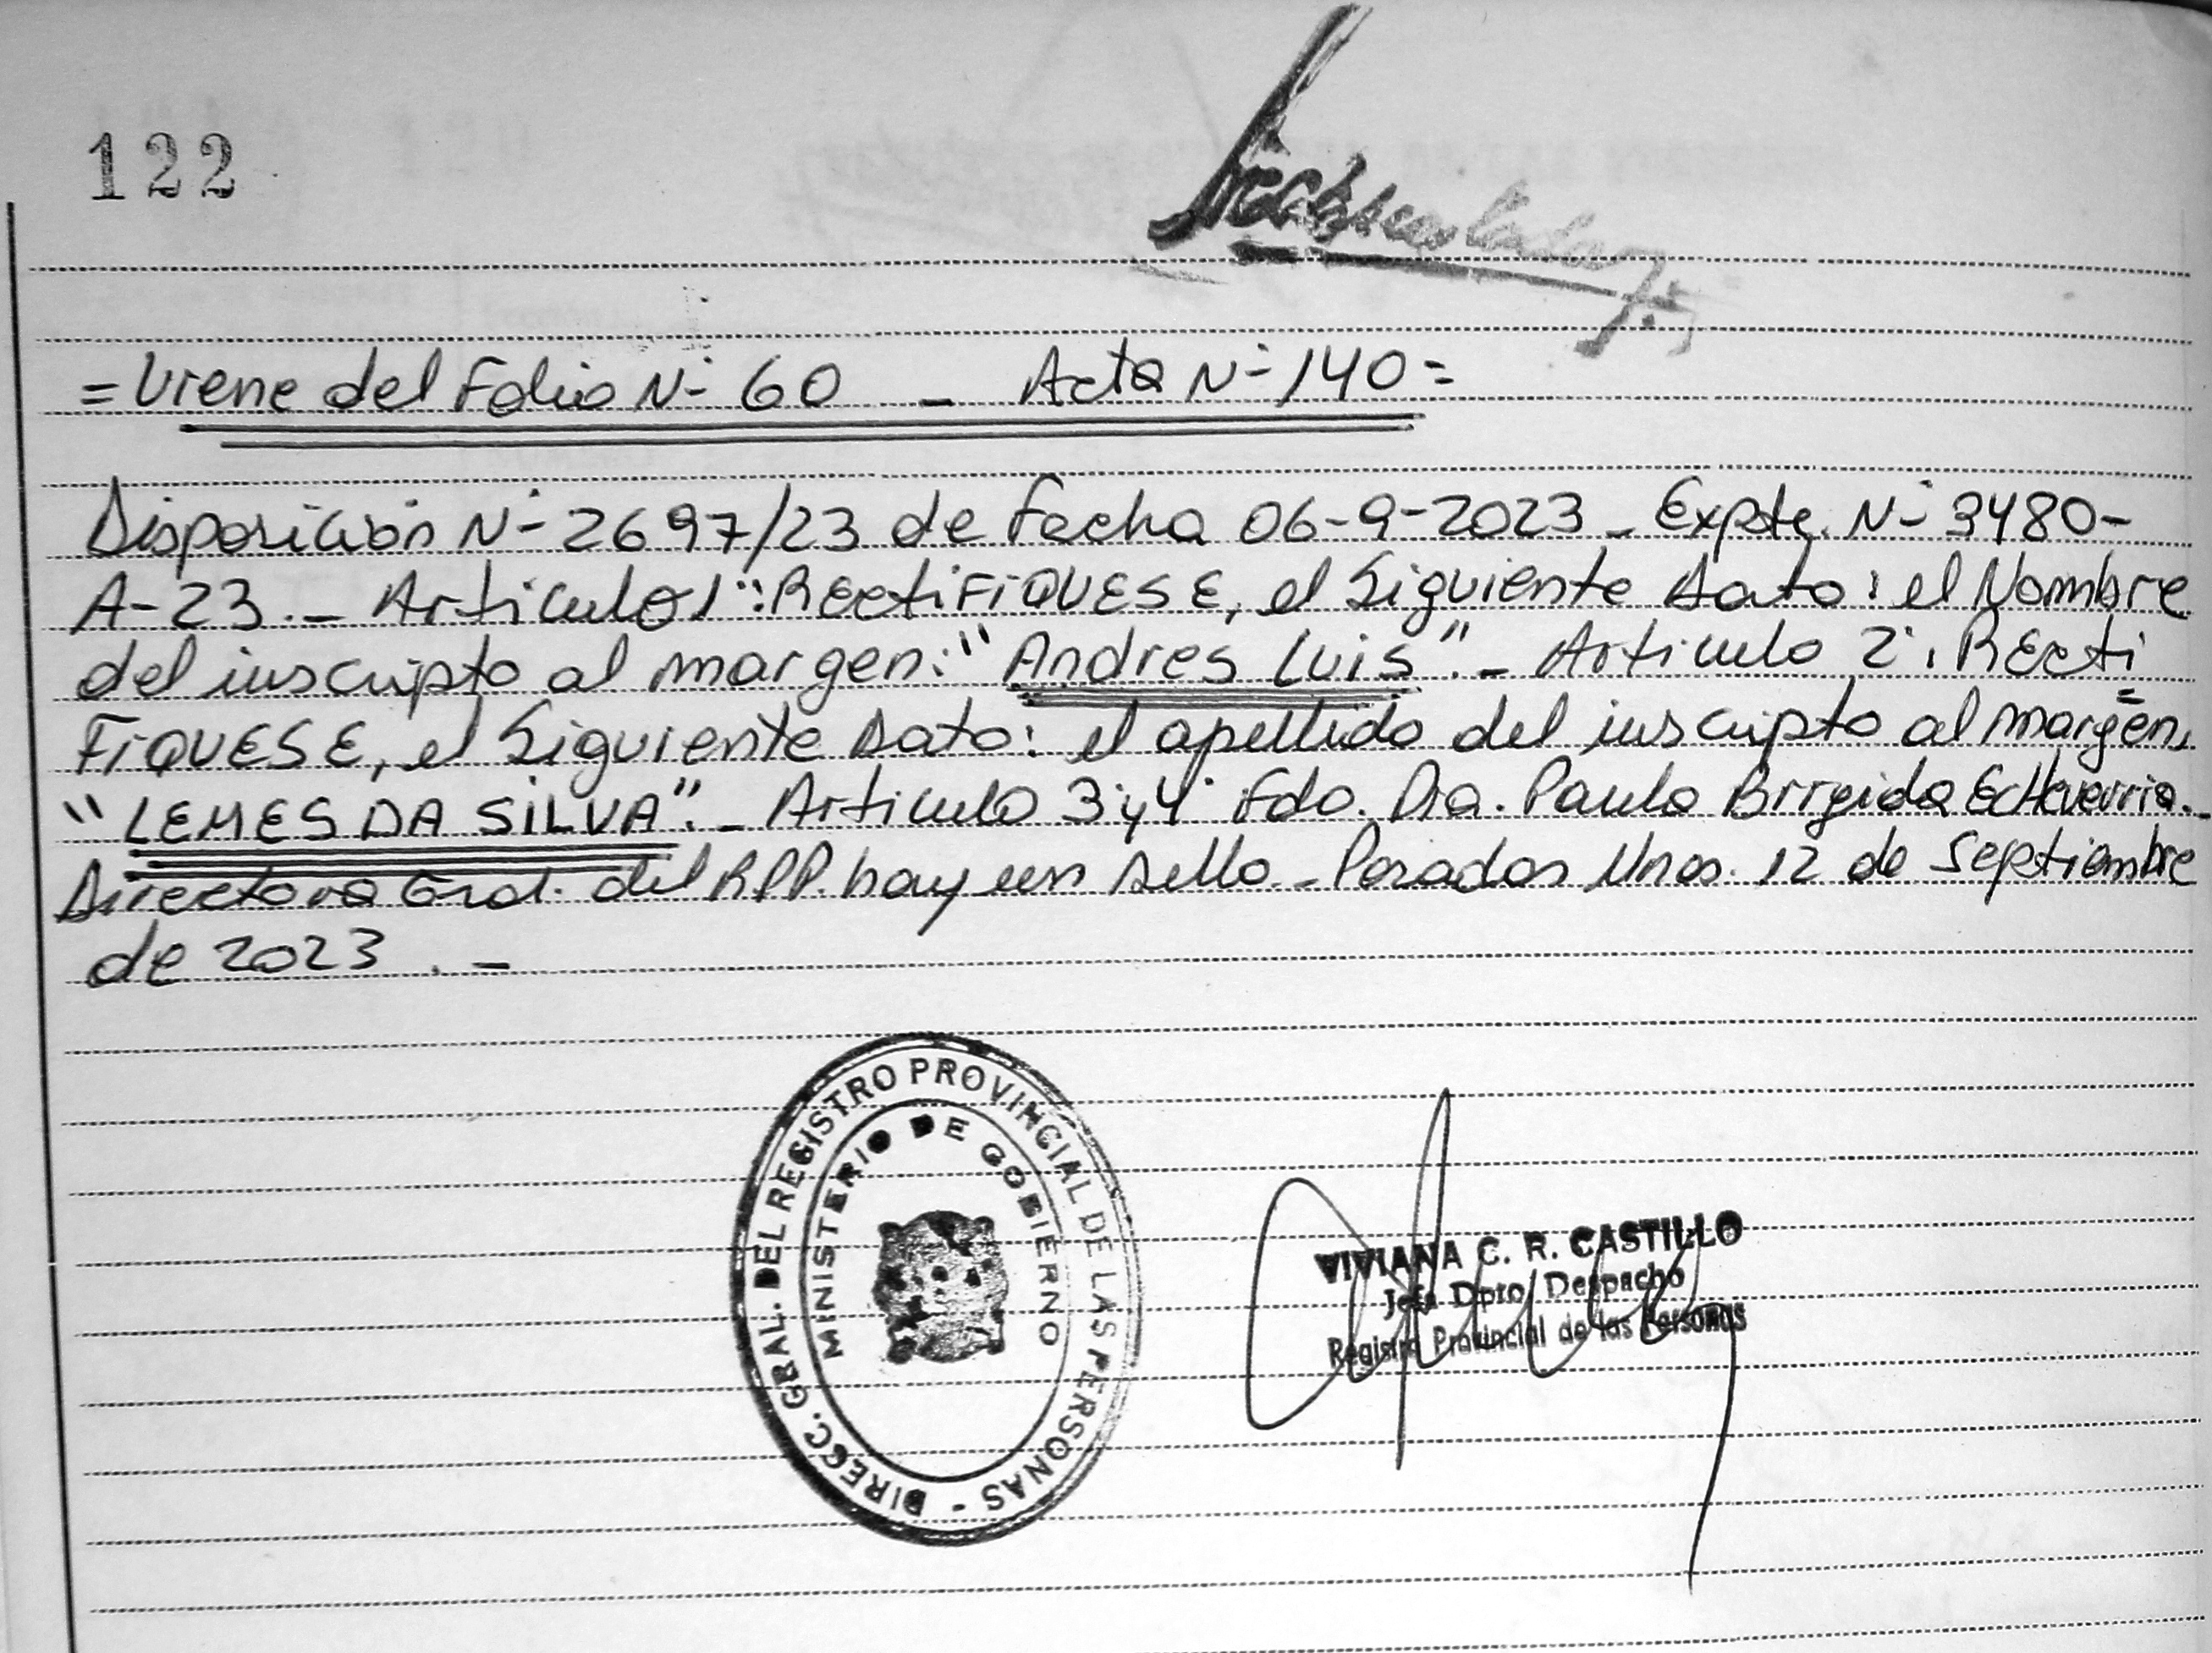 122
= Viene del Folio N- 60 _ Acta N- 140 =
Disposición N- 2697/23 de Fecha 06-9-2023 _ Expte. N- 3480-
A-23._ Articulo 1°: RECtiFiQUESE, el Siguiente Dato: el Nombre
del inscripto al margen: "Andres Luis"._ Articulo 2°. RECti
FiQUESE, el Siguiente Dato: el apellido del inscripto al margen,
"LEMES DA SILVA"._ Articulo 3° y 4° Fdo. Dra. Paula Brigida Echeverria._
Directora Gral. del RPP. hay un sello._ Posadas Mnes. 12 de Septiembre
de 2023._
DIRECC. GRAL. DEL REGISTRO PROVINCIAL DE LAS PERSONAS -
MINISTERIO DE GOBIERNO
VIVIANA C. R. CASTILLO
Jefa Dpto. Despacho
Registro Provincial de las Personas